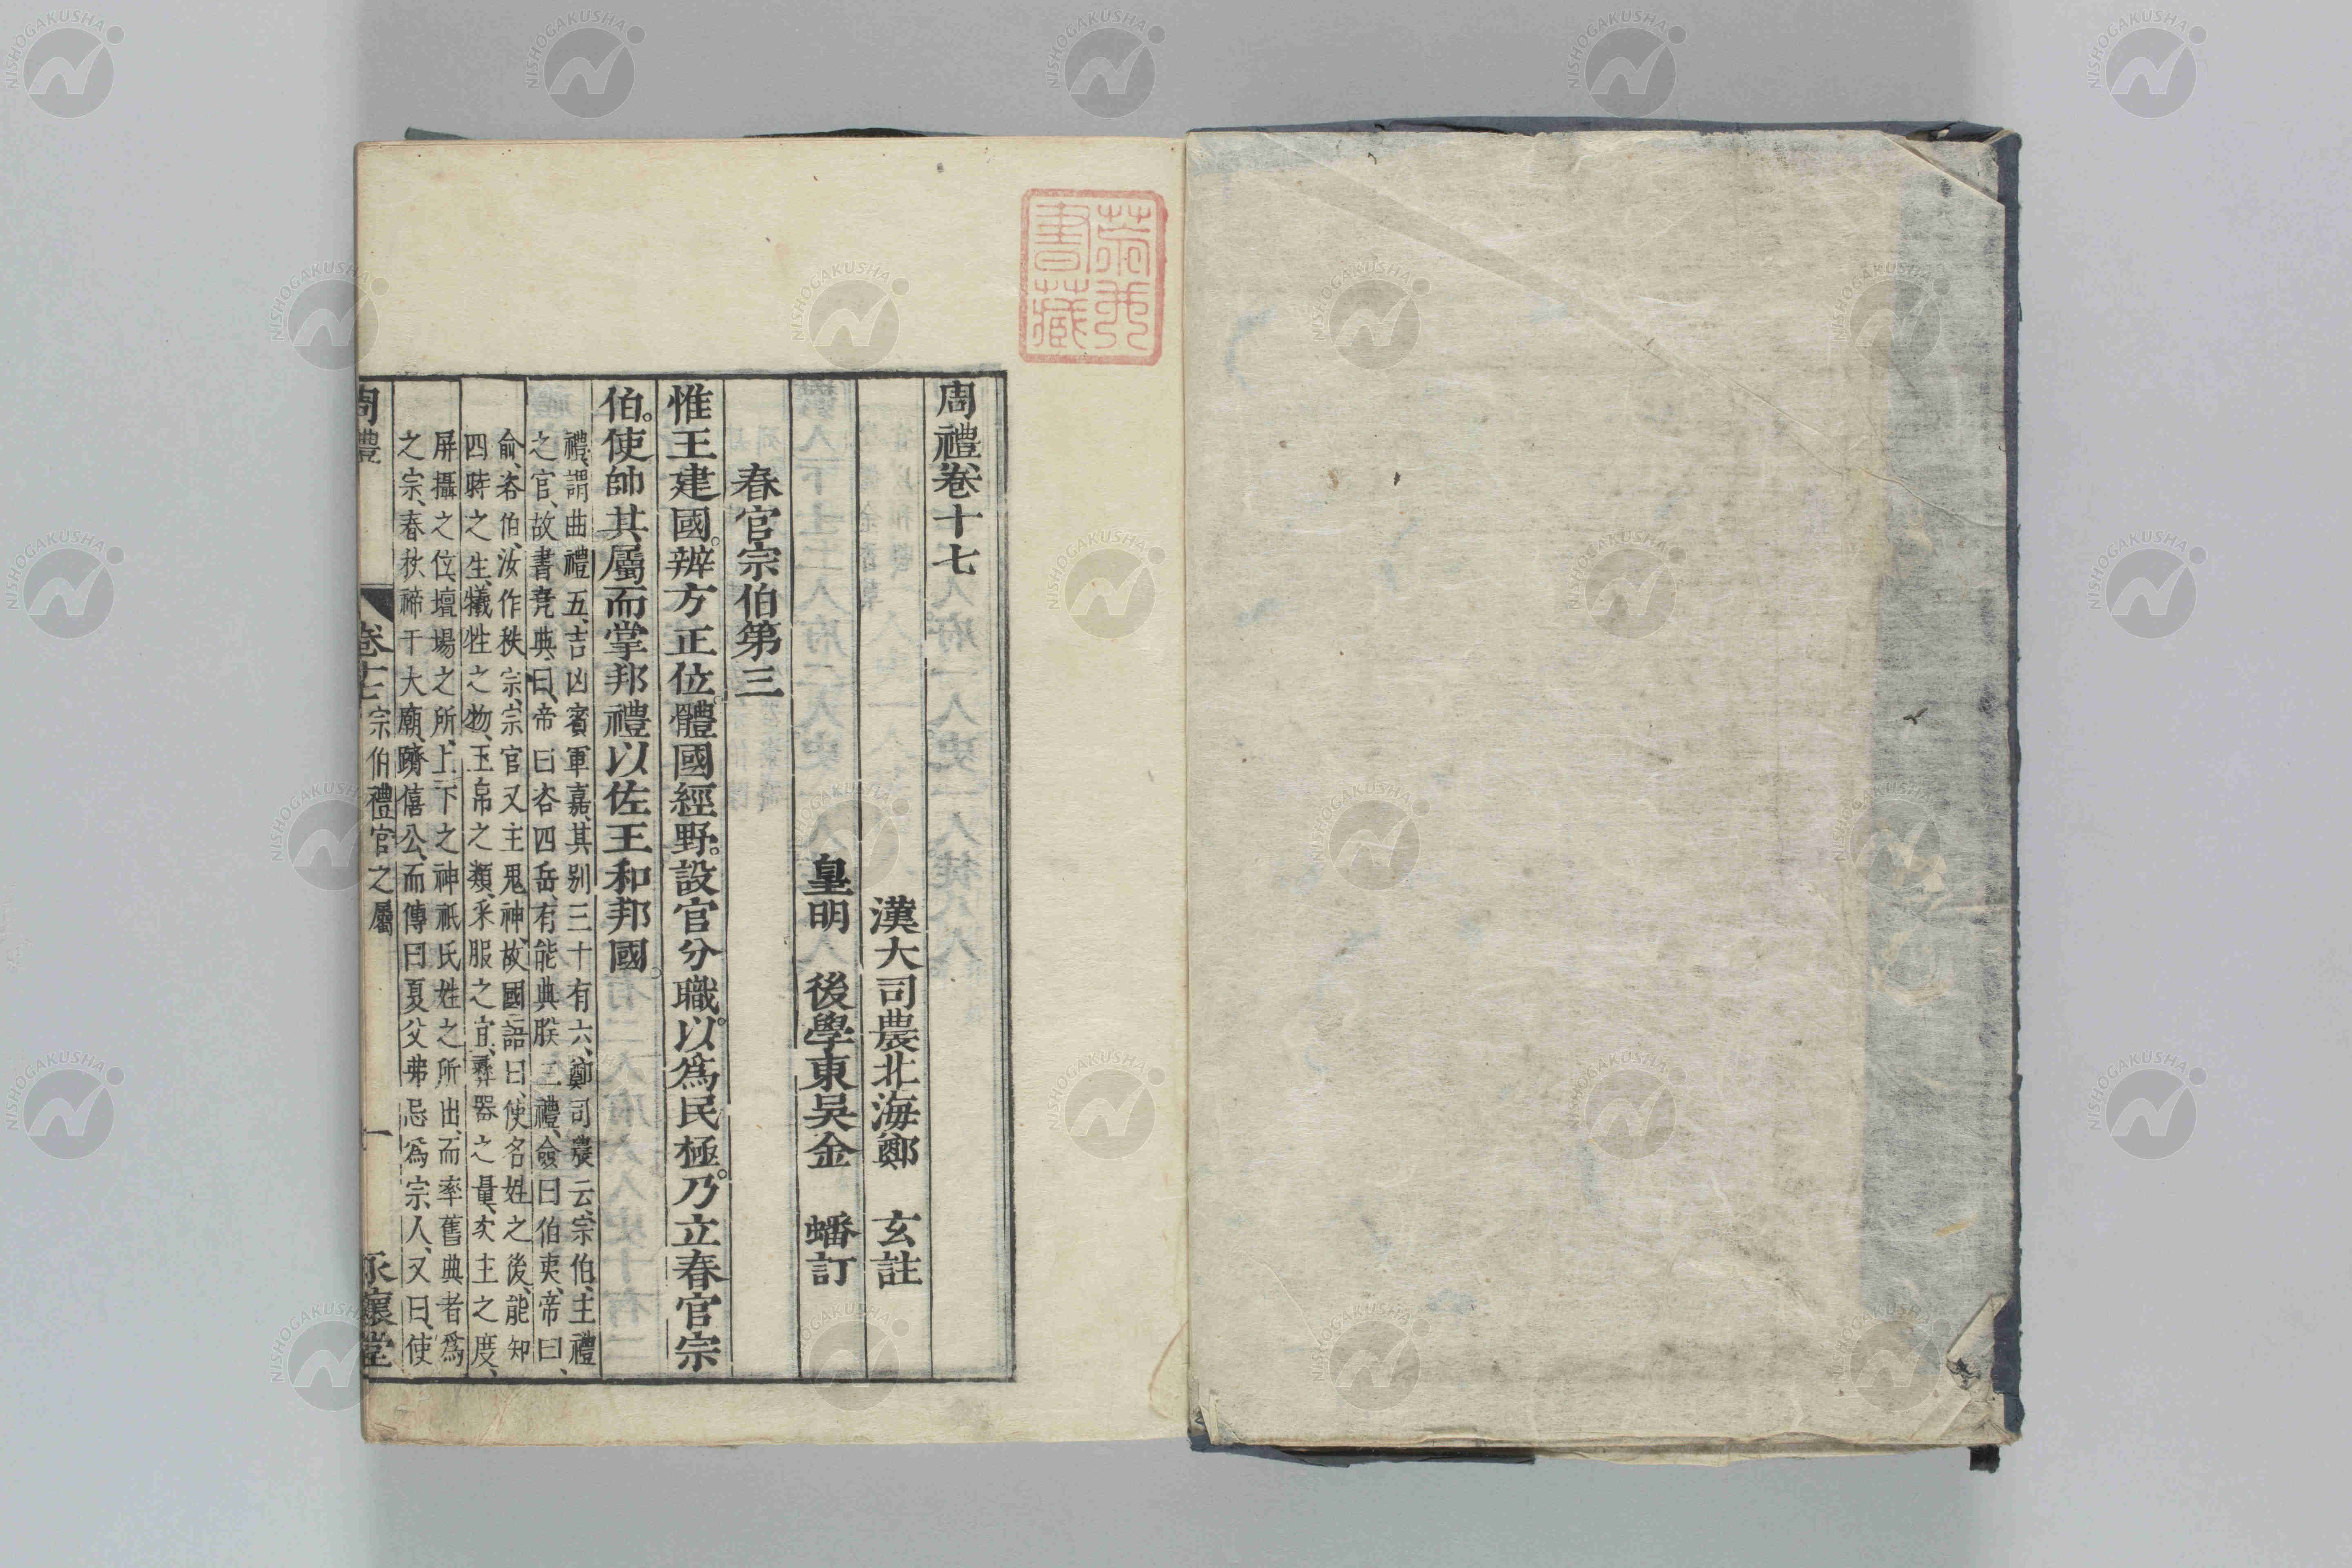 周禮卷十七
漢大司農北海鄭 玄註
皇明 後學東吳金 蟠訂
春官宗伯第三
惟王建國。辨方正位。體國經野。設官分職。以爲民極。乃立春官宗
伯。使帥其屬而掌邦禮以佐王和邦國。
禮、謂曲禮五、吉凶賓軍嘉、其别三十有六、鄭司農云、宗伯、主禮
之官、故書堯典曰、帝曰咨四岳、有能典朕三禮、僉曰伯夷、帝曰、
俞、咨伯、汝作秩宗、宗官又主鬼神、故國語曰、使名姓之後、能知
四時之生、犧牲之物、玉帛之類、采服之宜、彝器之量、次主之度、
屏攝之位、壇場之所、上下之神祇氏姓之所出、而率舊典者爲
之宗、春秋禘于大廟、躋僖公、而傳曰夏父弗忌爲宗人、又曰、使
周禮 卷十七 宗伯禮官之屬 一 永懷堂
書藏
NISHOGAKUSHA